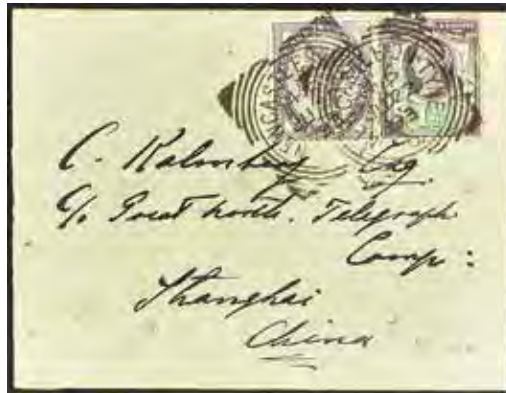 NEWCASTLE
C. Kalmberg Esq.
C/o Great North. Telegraph
Comp:
Shanghai
China